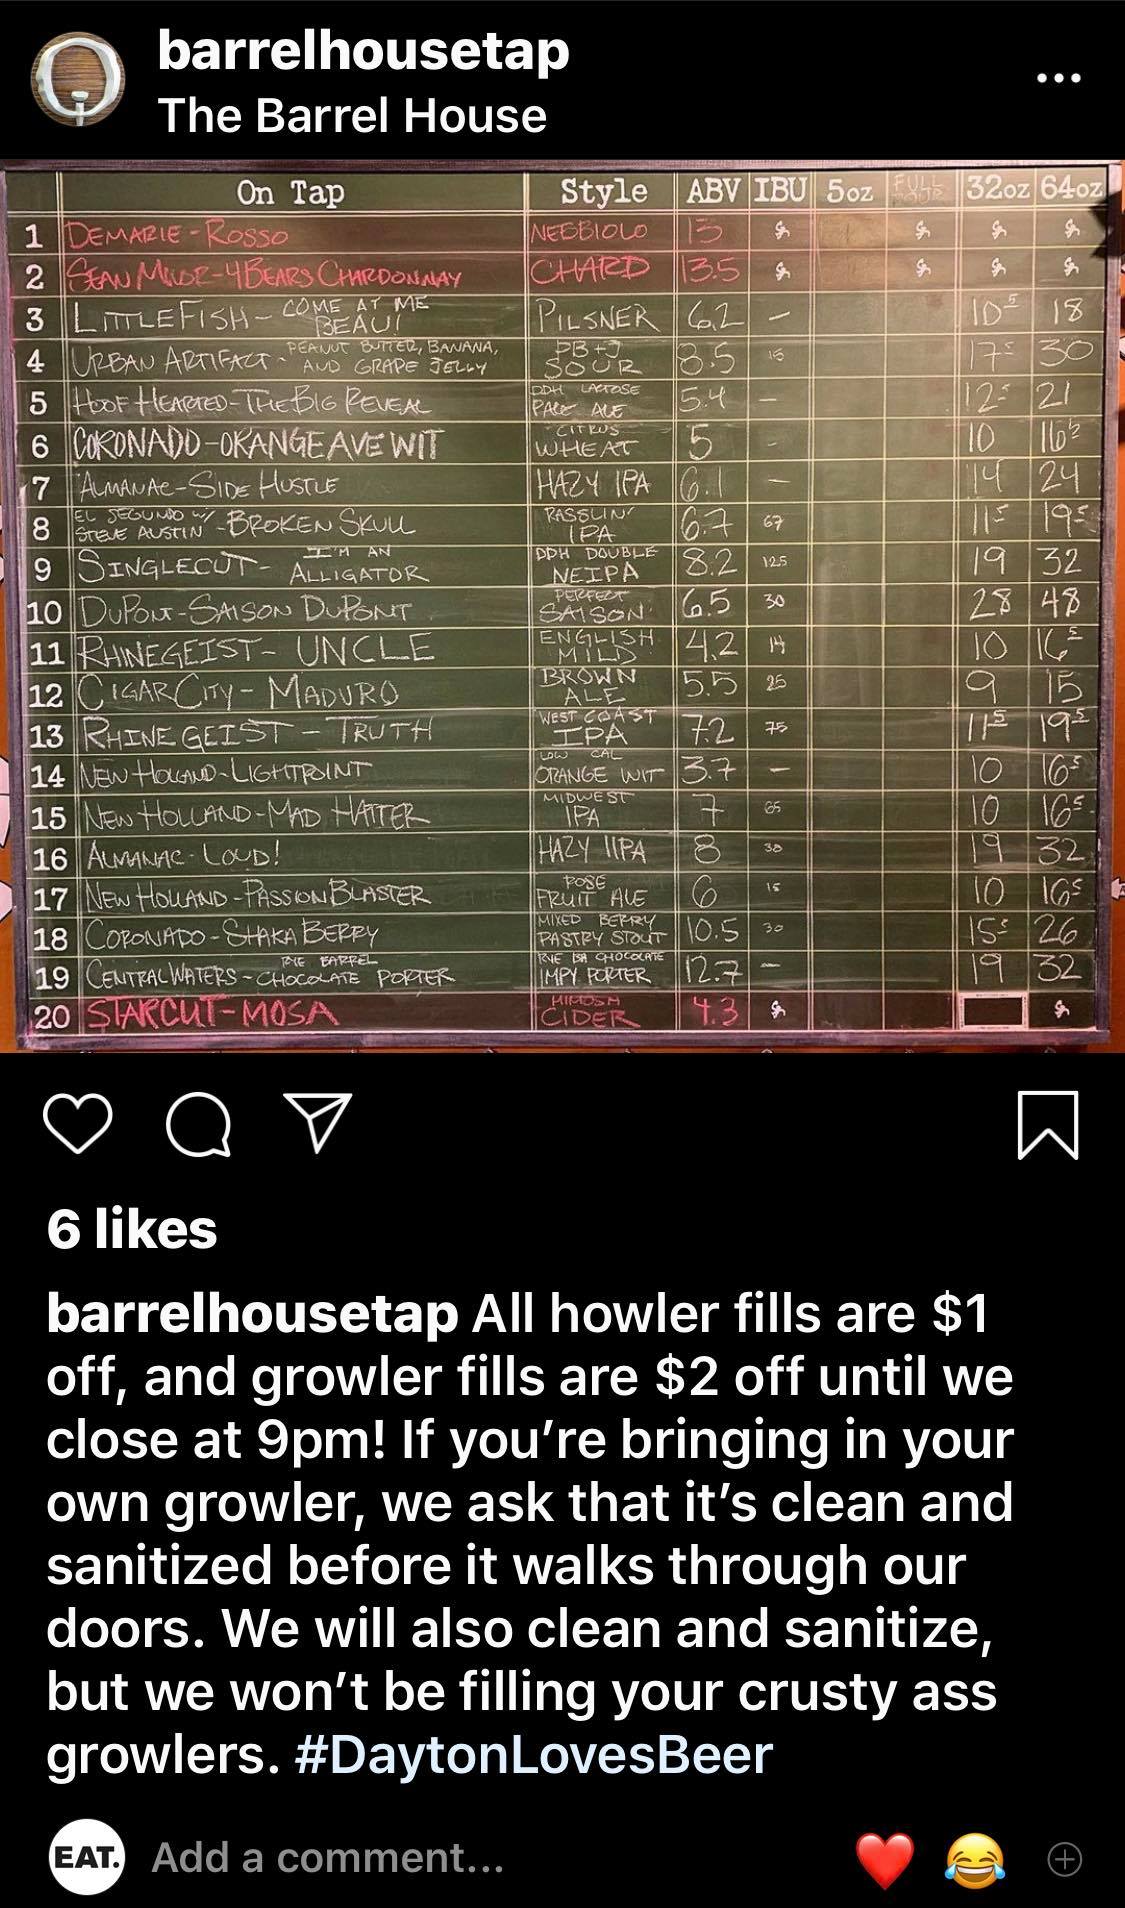 barrelhousetap
The Barrel House
On Tap Style ABV IBU 5oz FULL POUR 32oz 64oz
1 DEMARIE - ROSSO NEBBIOLO 13
2 SEAN MINOR - 4 BEARS CHARDONNAY CHARD 13.5
3 LITTLE FISH - COME AT ME BEAU! PILSNER 6.2 - 10.5 18
4 URBAN ARTIFACT - PEANUT BUTTER, BANANA, AND GRAPE JELLY PB+J SOUR 8.5 15 17.5 30
5 HOOF HEARTED - THE BIG REVEAL DDH LACTOSE PALE ALE 5.4 - 12.5 21
6 CORONADO - ORANGE AVE WIT CITRUS WHEAT 5 - 10 16.5
7 ALMANAC - SIDE HUSTLE HAZY IPA 6.1 - 14 24
8 EL SEGUNDO W/ STEVE AUSTIN - BROKEN SKULL RASSLIN' IPA 6.7 67 11.5 19.5
9 SINGLECUT - I'M AN ALLIGATOR DDH DOUBLE NEIPA 8.2 125 19 32
10 DUPONT - SAISON DUPONT PERFECT SAISON 6.5 30 28 48
11 RHINEGEIST - UNCLE ENGLISH MILD 4.2 14 10 16.5
12 CIGAR CITY - MADURO BROWN ALE 5.5 25 9 15
13 RHINEGEIST - TRUTH WEST COAST IPA 7.2 75 11.5 19.5
14 NEW HOLLAND - LIGHTPOINT LOW CAL ORANGE WIT 3.7 - 10 16.5
15 NEW HOLLAND - MAD HATTER MIDWEST IPA 7 65 10 16.5
16 ALMANAC - LOUD! HAZY IIPA 8 30 19 32
17 NEW HOLLAND - PASSION BLASTER ROSE FRUIT ALE 6 15 10 16.5
18 CORONADO - SHAKA BERRY MIXED BERRY PASTRY STOUT 10.5 30 15.5 26
19 CENTRAL WATERS - RYE BARREL CHOCOLATE PORTER RYE BA CHOCOLATE IMPY PORTER 12.7 - 19 32
20 STARCUT - MOSA MIMOSA CIDER 4.3
6 likes
barrelhousetap All howler fills are $1
off, and growler fills are $2 off until we
close at 9pm! If you’re bringing in your
own growler, we ask that it’s clean and
sanitized before it walks through our
doors. We will also clean and sanitize,
but we won’t be filling your crusty ass
growlers. #DaytonLovesBeer
EAT. Add a comment...